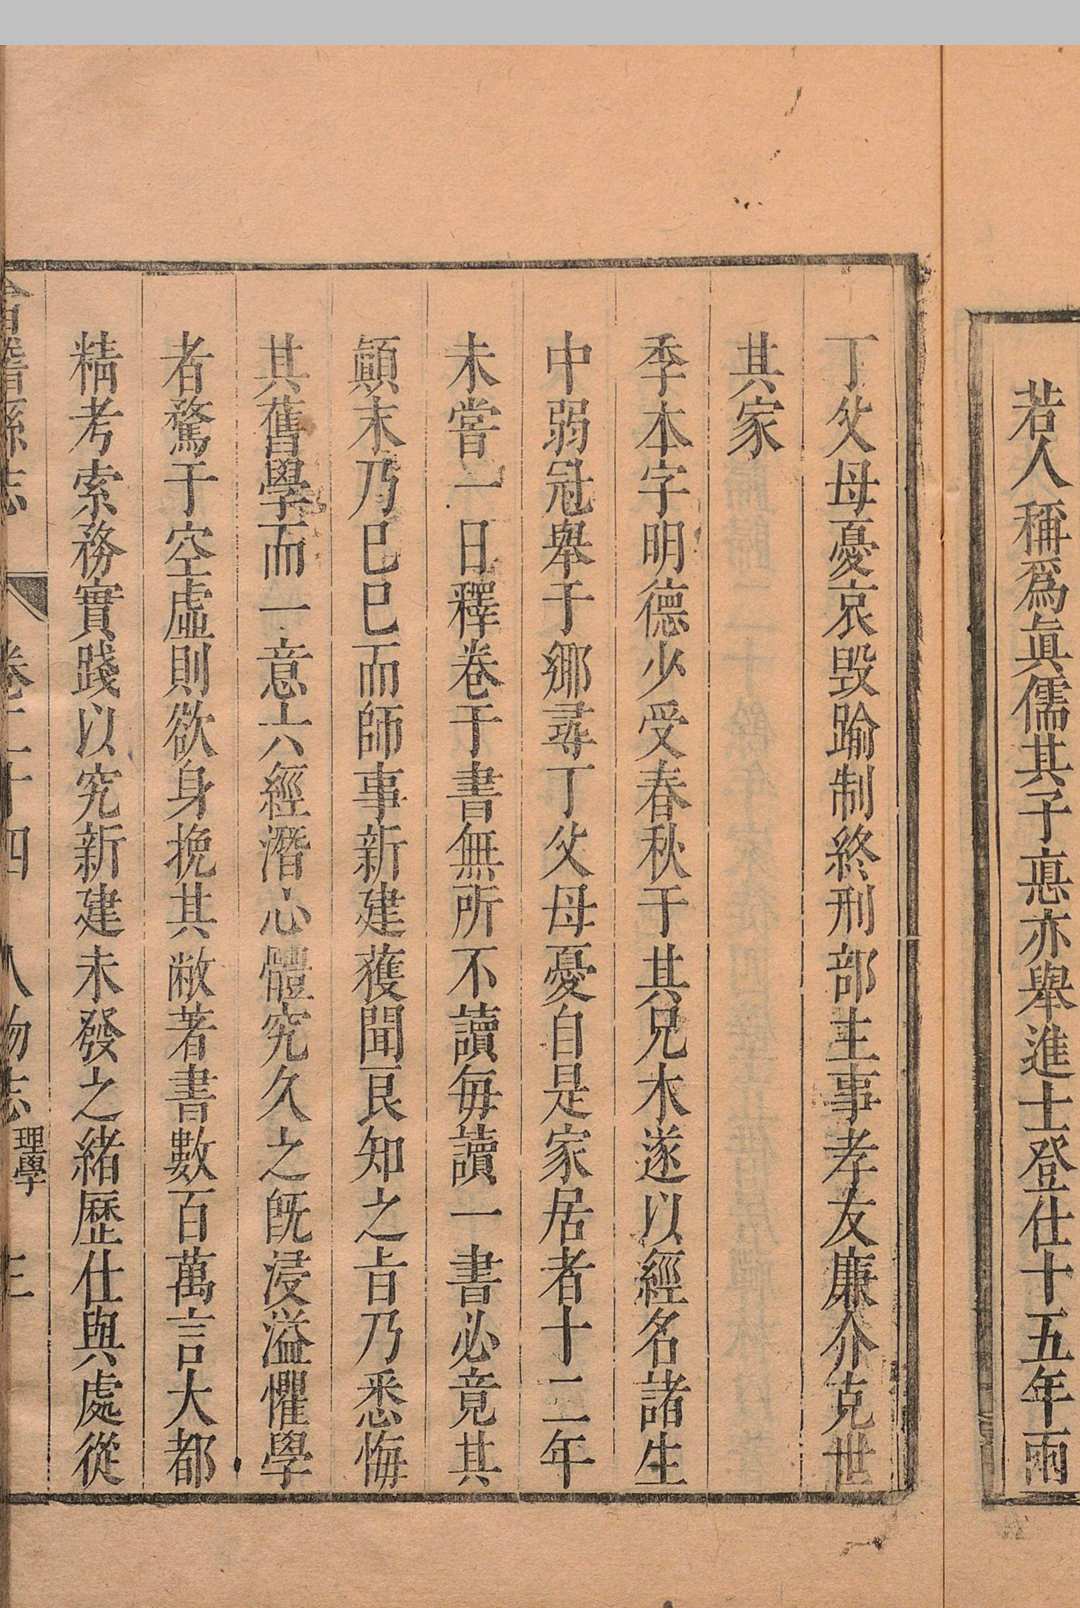 若人稱爲眞儒其子悳亦舉進士登仕十五年兩
丁父母憂哀毁踰制終刑部主事孝友廉介克世
其家
季本字明德少受春秋于其兄木遂以經名諸生
中弱冠舉于鄉尋丁父母憂自是家居者十二年
未嘗一日釋卷于書無所不讀每讀一書必竟其
顛末乃巳巳而師事新建獲聞良知之旨乃悉悔
其舊學而一意六經潛心體究久之旣浸溢懼學
者騖于空虛則欲身挽其敝著書數百萬言大都
精考索務實踐以究新建未發之緒歷仕與處從
會稽縣志 卷二十四 人物志 理學 三